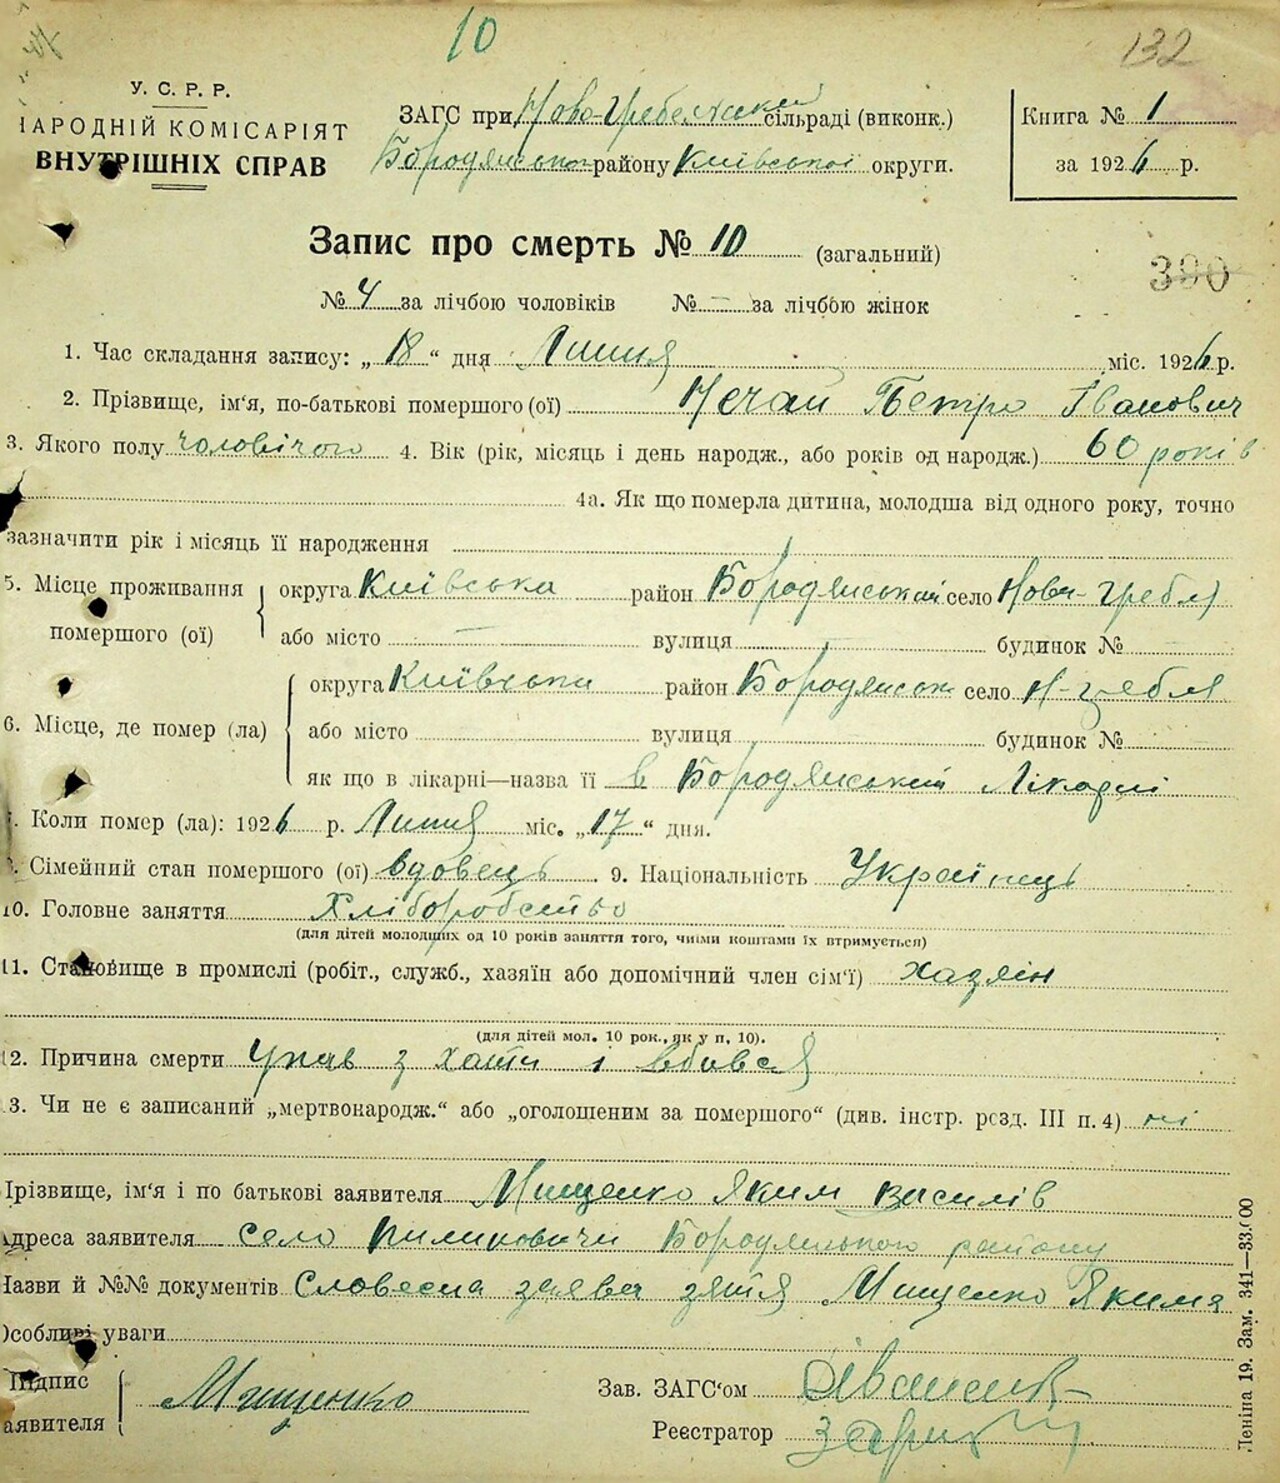 10
132
У. С. Р. Р.
НАРОДНІЙ КОМІСАРІЯТ
ВНУТРІШНІХ СПРАВ
ЗАГС при Ново-Гребельській сільраді (виконк.)
Бородянського району Київської округи.
Книга № 1
за 1926 р.
Запис про смерть № 10 (загальний)
390
№ 4 за лічбою чоловіків № — за лічбою жінок
1. Час складання запису: „18“ дня Липня міс. 1926 р.
2. Прізвище, ім'я, по-батькові помершого (ої) Нечай Петро Іванович
3. Якого полу чоловічого 4. Вік (рік, місяць і день народж., або років од народж.) 60 років
4а. Як що померла дитина, молодша від одного року, точно
зазначити рік і місяць її народження
5. Місце проживання помершого (ої)
округа Київська район Бородянський село Нова-Гребля
або місто — вулиця — будинок № —
6. Місце, де помер (ла)
округа Київська район Бородянськ село Н-гребля
або місто вулиця будинок №
як що в лікарні—назва її в Бородянській Лікарні
7. Коли помер (ла): 1926 р. Липня міс. „17“ дня.
8. Сімейний стан помершого (ої) вдовець 9. Національність Українець
10. Головне заняття Хліборобство
(для дітей молодших од 10 років заняття того, чиїми коштами їх втримується)
11. Становище в промислі (робіт., служб., хазяїн або допомічний член сім'ї) хазяїн
(для дітей мол. 10 рок., як у п. 10).
12. Причина смерти Упав з хати і вбився
13. Чи не є записаний „мертвонародж.“ або „оголошеним за помершого“ (див. інстр. розд. III п. 4) ні
Прізвище, ім'я і по батькові заявителя Мищенко Яким Василів
Адреса заявителя село Пилиповичи Бородянського району
Назви й №№ документів Словесна заява зятя Мищенко Якима
Особливі уваги
Підпис заявителя Мищенко
Зав. ЗАГС'ом
Реєстратор
Леніна 19. Зам. 341—33.000